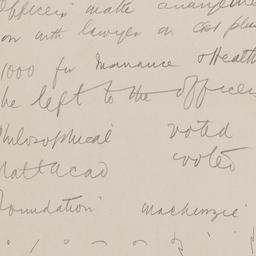 Officers make arrangement
on with lawyer on cost plus
1000 for Insurance & Health
be left to the officers
Philosophical voted
Nat Acad voted
Foundation Mackenzie